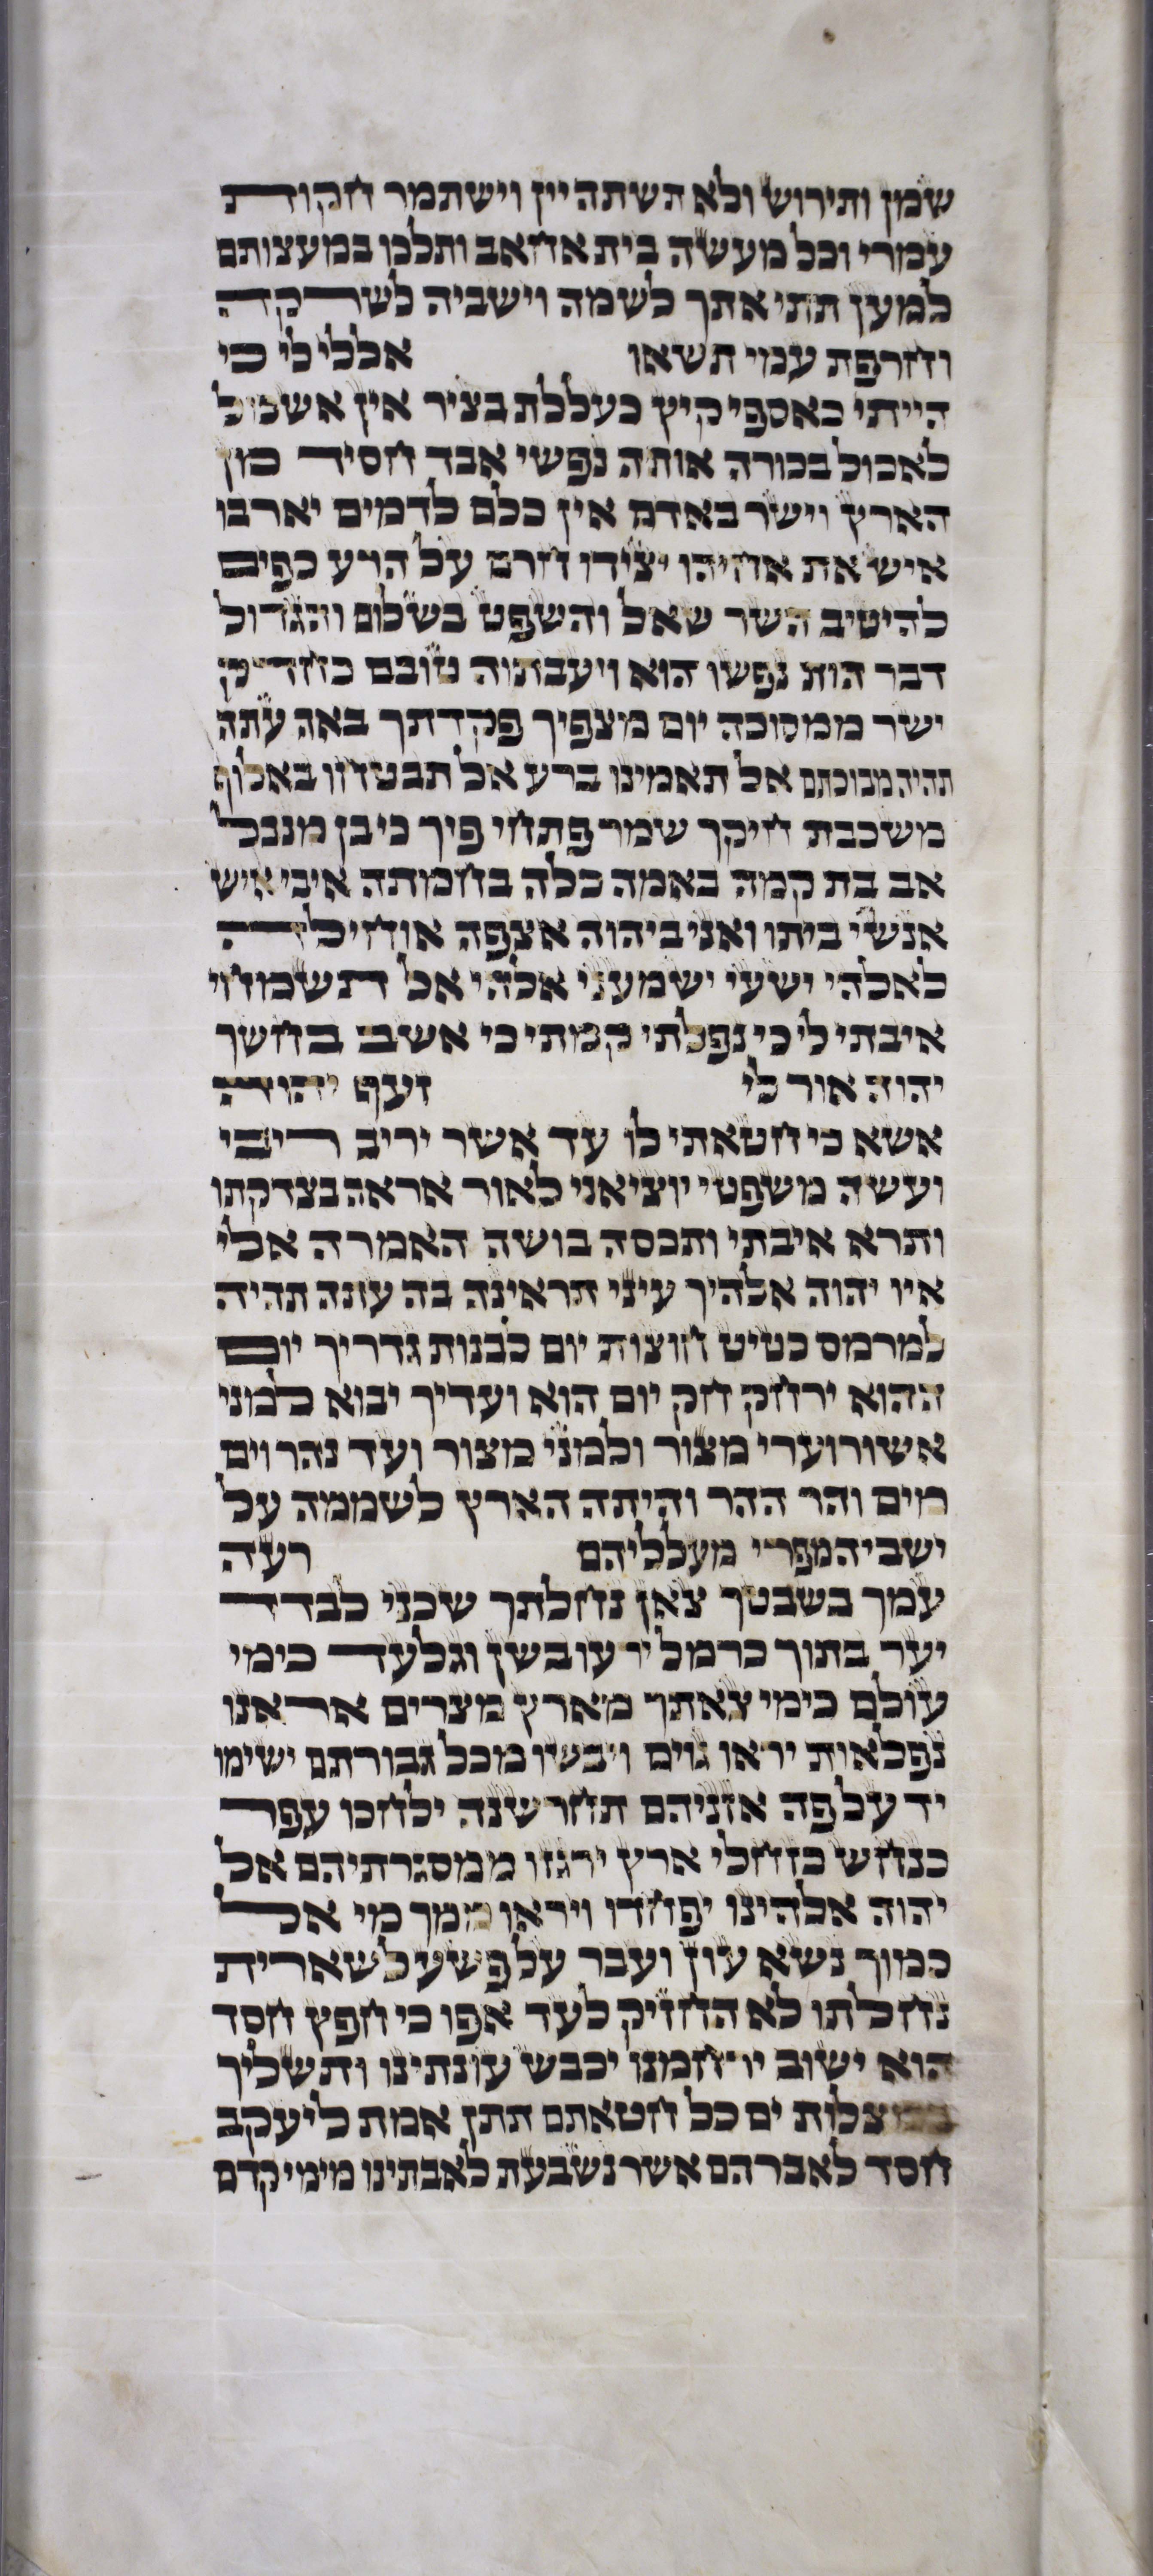 שמן ותירוש ולא תשתה יין וישתמר חקות
עמרי וכל מעשה בית אחאב ותלכו במעצותם
למען תתי אתך לשמה וישביה לשרקה
וחרפת עמי תשאו אללי לי כי
הייתי כאספי קיץ כעללת בציר אין אשכול
לאכול בכורה אותה נפשי אבד חסיד מן
הארץ וישר באדם אין כלם לדמים יארבו
איש את אחיהו יצודו חרם על הרע כפים
להיטיב השר שאל והשפט בשלום והגדול
דבר הות נפשו הוא ויעבתוה טובם כחדק
ישר ממסוכה יום מצפיך פקדתך באה עתה
תהיה מבוכתם אל תאמינו ברע אל תבטחו באלוף
משכבת חיקך שמר פתחי פיך כי בן מנבל
אב בת קמה באמה כלה בחמתה איבי איש
אנשי ביתו ואני ביהוה אצפה אוחילה
לאלהי ישעי ישמעני אלהי אל תשמחי
איבתי לי כי נפלתי קמתי כי אשב בחשך
יהוה אור לי זעף יהוה
אשא כי חטאתי לו עד אשר יריב ריבי
ועשה משפטי יוציאני לאור אראה בצדקתו
ותרא איבתי ותכסה בושה האמרה אלי
איו יהוה אלהיך עיני תראינה בה עתה תהיה
למרמס כטיט חוצות יום לבנות גדריך יום
ההוא ירחק חק יום הוא ועדיך יבוא למני
אשור וערי מצור ולמני מצור ועד נהר וים
מים והר ההר והיתה הארץ לשממה על
ישביה מפרי מעלליהם רעה
עמך בשבטך צאן נחלתך שכני לבדד
יער בתוך כרמל ירעו בשן וגלעד כימי
עולם כימי צאתך מארץ מצרים אראנו
נפלאות יראו גוים ויבשו מכל גבורתם ישימו
יד על פה אזניהם תחרשנה ילחכו עפר
כנחש כזחלי ארץ ירגזו ממסגרתיהם אל
יהוה אלהינו יפחדו ויראו ממך מי אל
כמוך נשא עון ועבר על פשע לשארית
נחלתו לא החזיק לעד אפו כי חפץ חסד
הוא ישוב ירחמנו יכבש עונתינו ותשליך
במצלות ים כל חטאתם תתן אמת ליעקב
חסד לאברהם אשר נשבעת לאבתינו מימי קדם